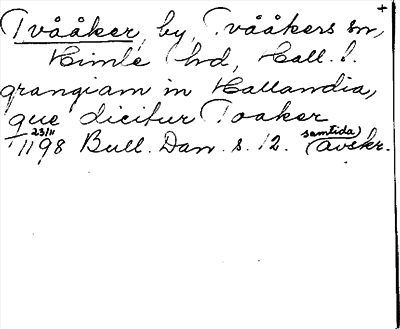 +
Tvååker, by, Tvååkers sn,
Himle hd, Hall. l.
grangiam in Hallandia,
que dicitur Toaker
23/11 1198 Bull. Dan. s. 12. (samtida) avskr.